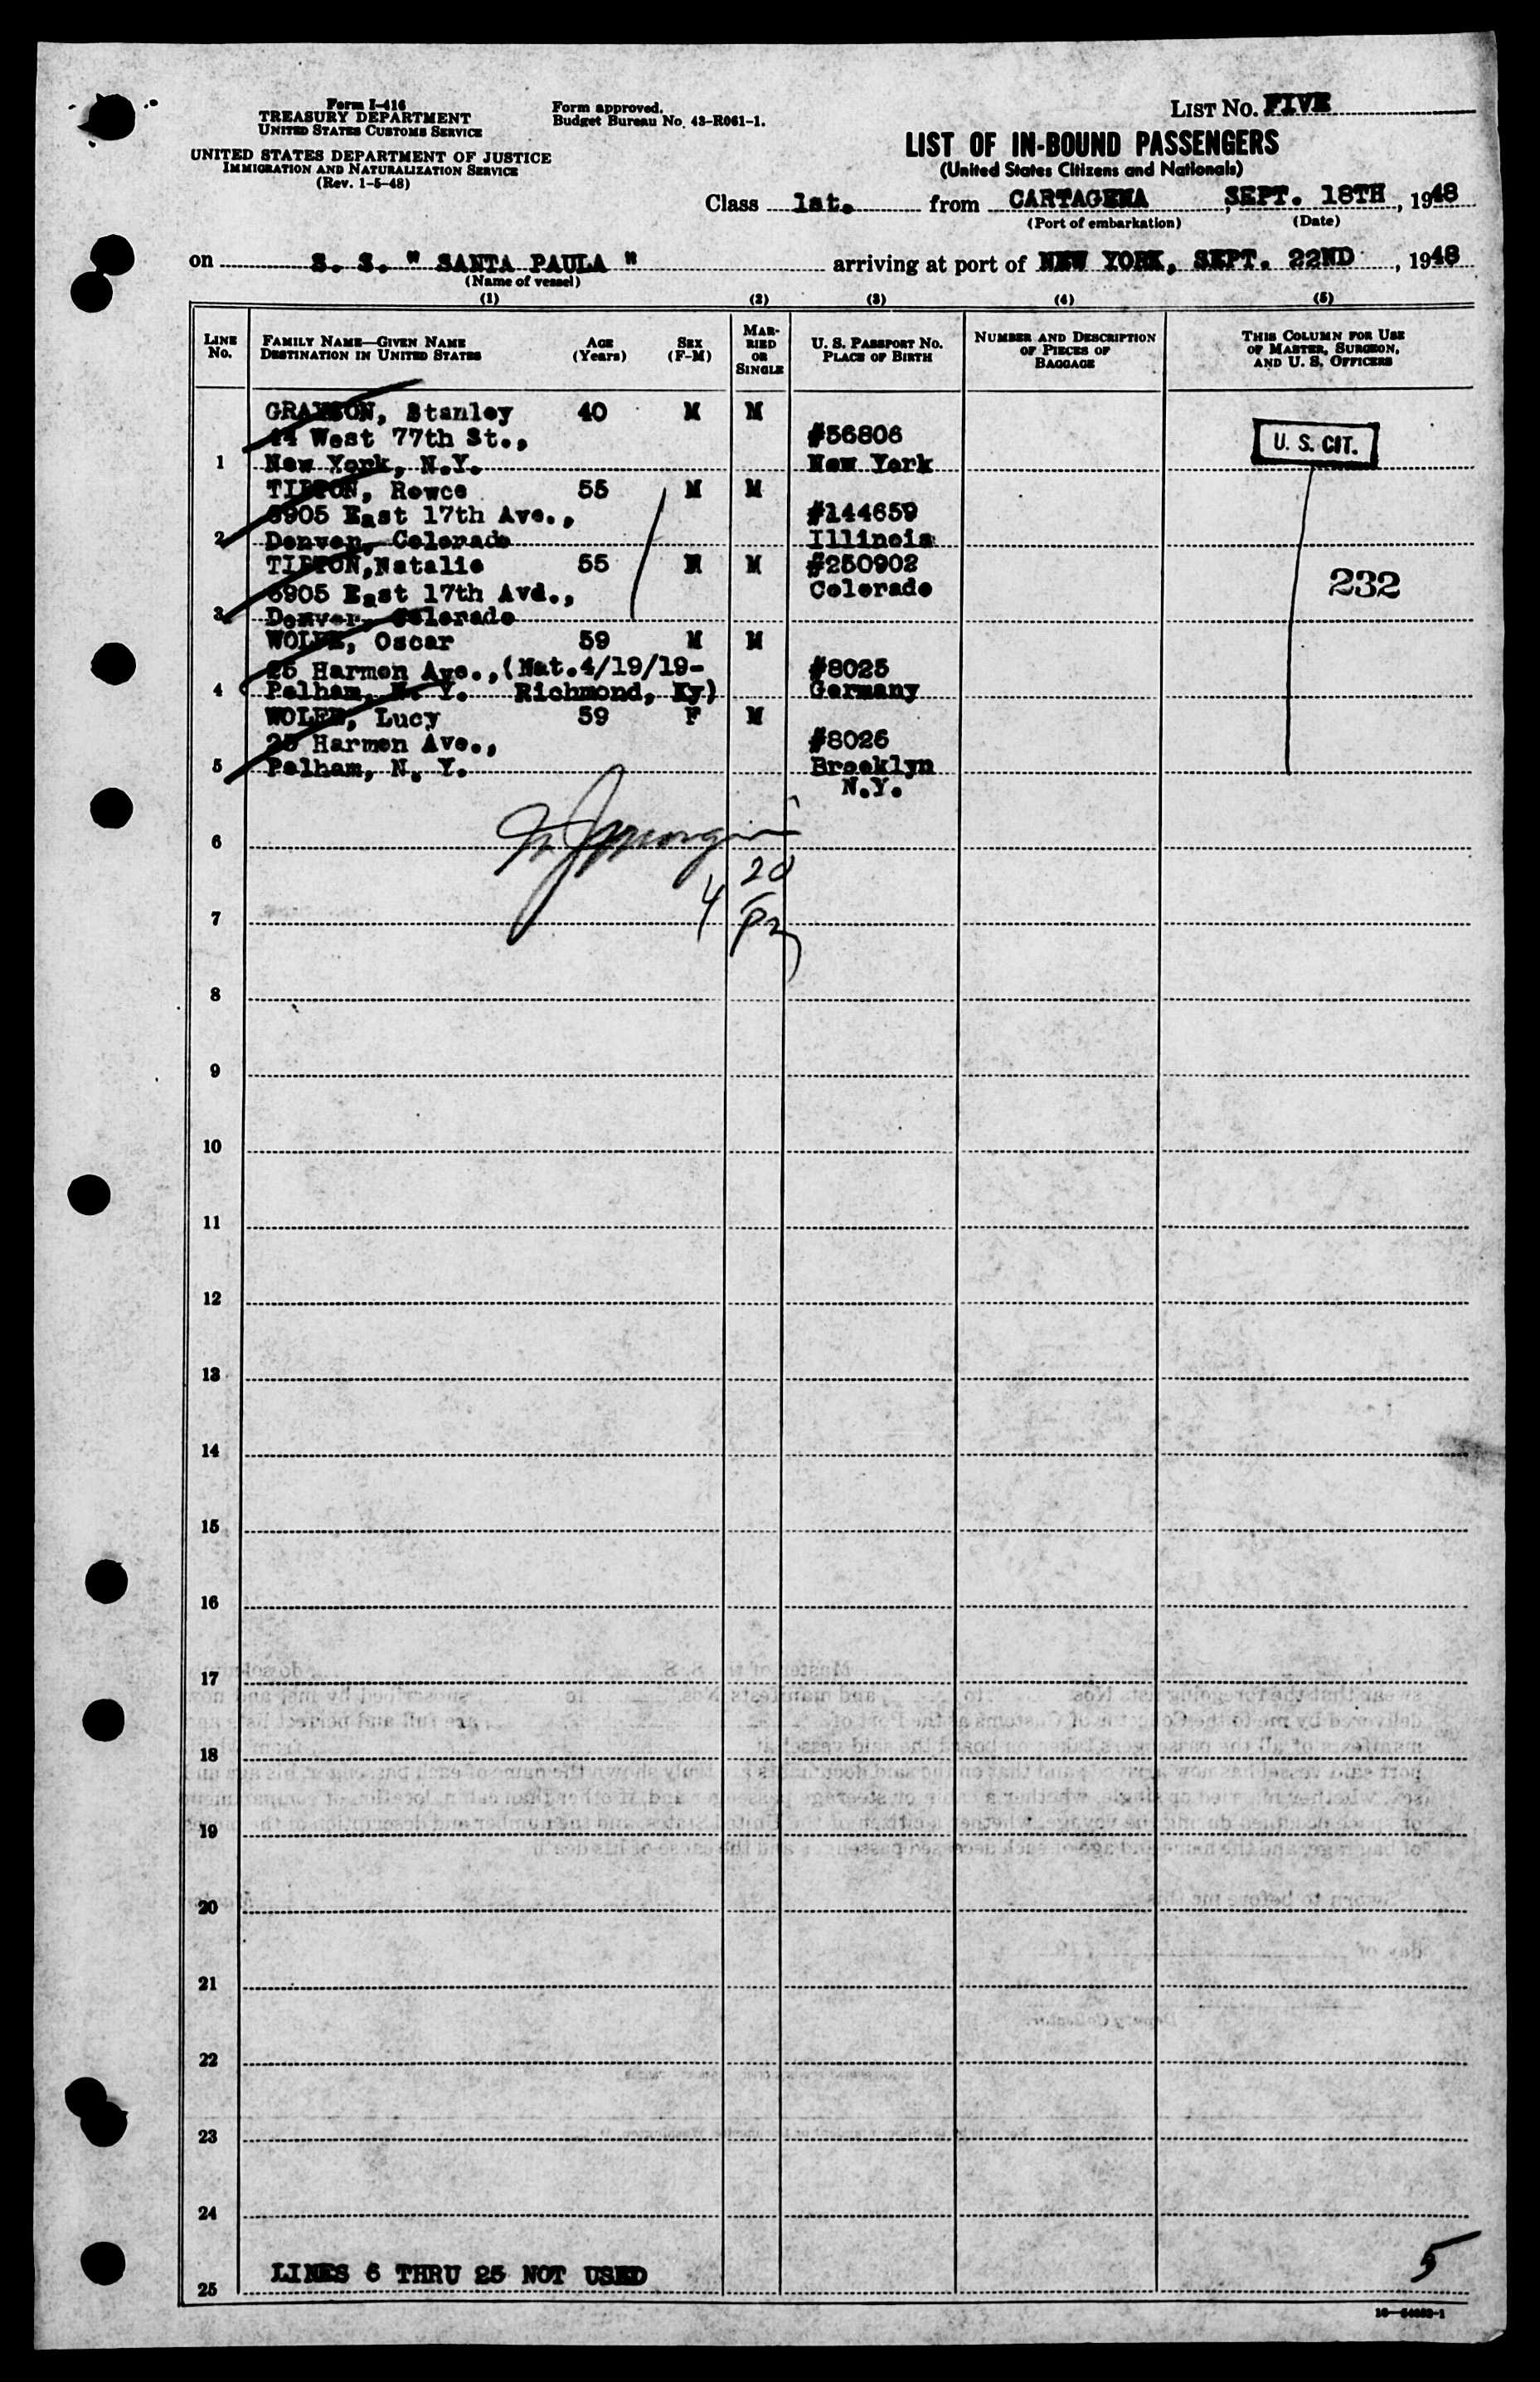 Form I-416
TREASURY DEPARTMENT
UNITED STATES CUSTOMS SERVICE
UNITED STATES DEPARTMENT OF JUSTICE
IMMIGRATION AND NATURALIZATION SERVICE
(Rev. 1-5-48)
Form approved.
Budget Bureau No. 43-R061-1.
LIST NO. FIVE
LIST OF IN-BOUND PASSENGERS
(United States Citizens and Nationals)
Class 1st. from CARTAGENA SEPT. 18TH, 1948
(Port of embarkation) (Date)
on S. S. " SANTA PAULA " arriving at port of NEW YORK, SEPT. 22ND, 1948
(Name of vessel)
(1) (2) (3) (4) (5)
LINE No. FAMILY NAME—GIVEN NAME DESTINATION IN UNITED STATES AGE (Years) SEX (F-M) MARRIED OR SINGLE U. S. PASSPORT NO. PLACE OF BIRTH NUMBER AND DESCRIPTION OF PIECES OF BAGGAGE THIS COLUMN FOR USE OF MASTER, SURGEON, AND U. S. OFFICERS
GRAYSON, Stanley 40 M M
44 West 77th St., #56806 U. S. CIT.
1 New York, N.Y. New York
TIPTON, Royce 55 M M
6905 East 17th Ave., #144659
2 Denver, Colorado Illinois
TIPTON,Natalie 55 M M #250902 232
6905 East 17th Avd., Colorado
3 Denver, Colorado
WOLFE, Oscar 59 M M
25 Harmon Ave., (Nat.4/19/19- #8025
4 Pelham, N. Y. Richmond, Ky) Germany
WOLFE, Lucy 59 F M
25 Harmon Ave., #8026
5 Pelham, N. Y. Brooklyn
N.Y.
6
4 20
7
8
9
10
11
12
13
14
15
16
17
18
19
20
21
22
23
24
LINES 6 THRU 25 NOT USED 5
25